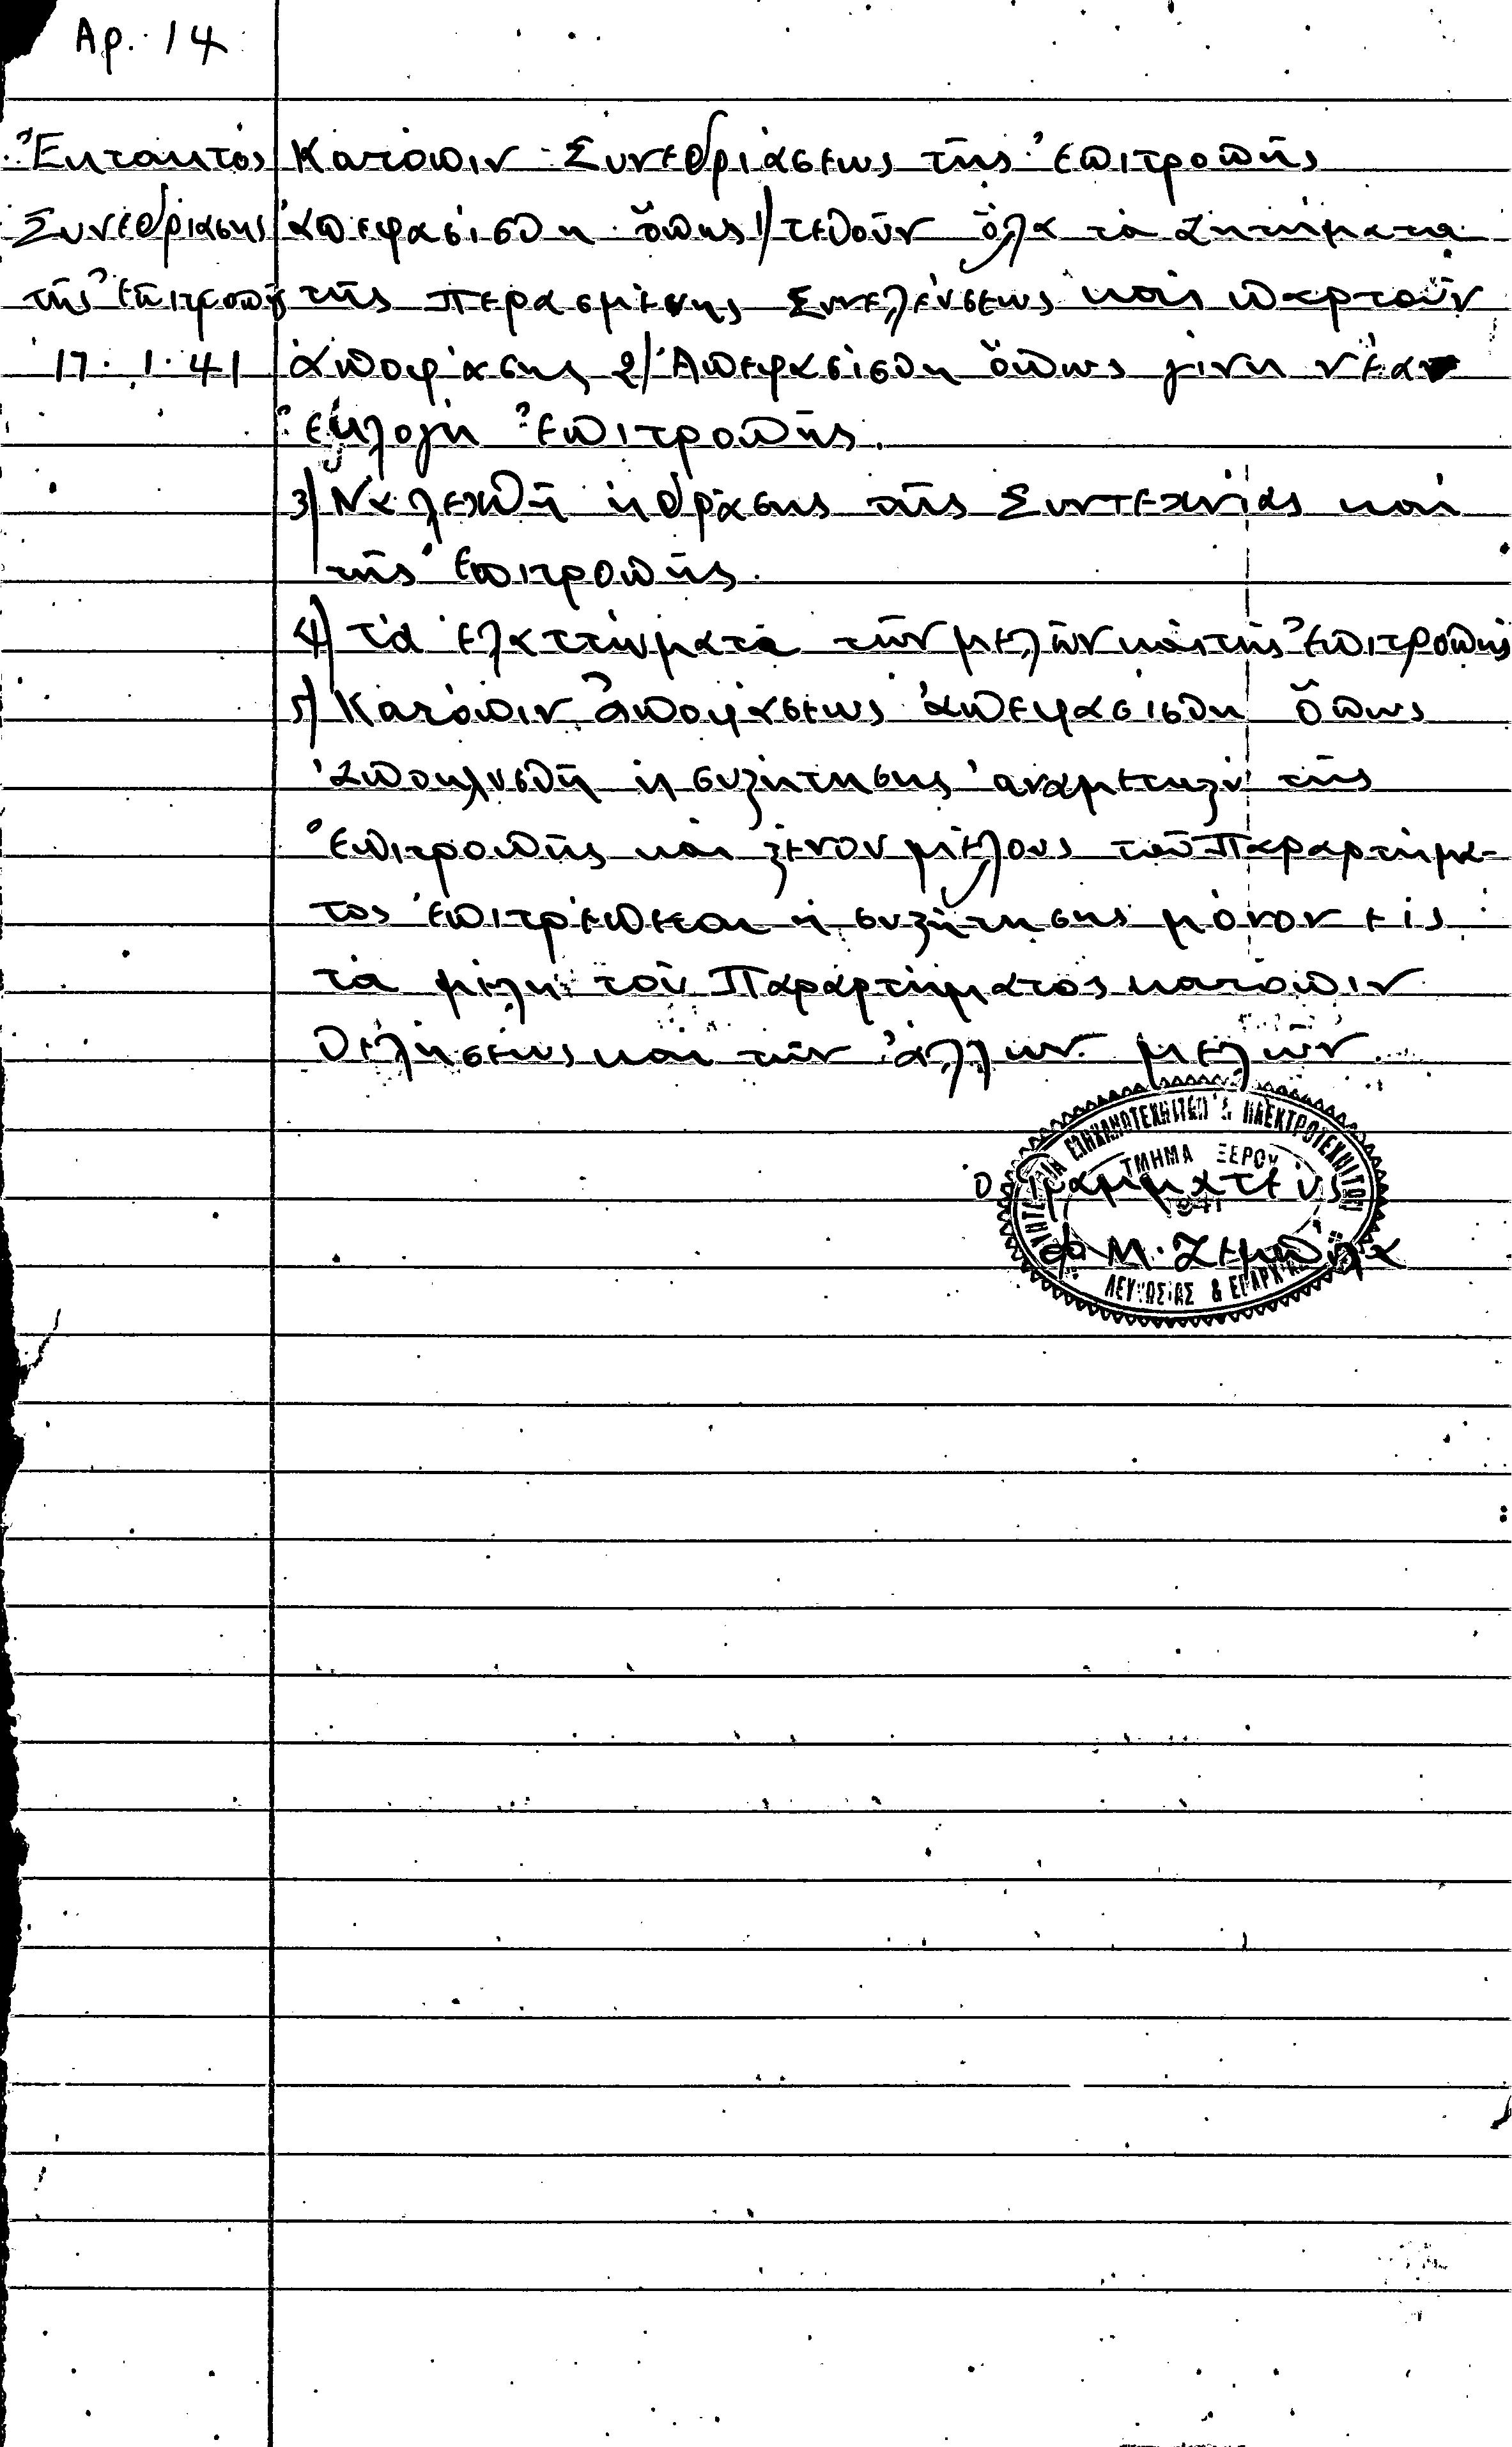 Αρ. 14
Ἔκτακτος
Συνεδρίασης
τῆς Ἐπιτροπῆς
17.1.41
Κατόπιν Συνεδριάσεως τῆς Ἐπιτροπῆς
ἀπεφασίσθη ὅπως 1) τεθοῦν ὅλα τὰ ζητήματα
τῆς περασμένης Συνελεύσεως καὶ παρτοῦν
ἀποφάσης 2) Ἀπεφασίσθη ὅπως γίνη νέα
ἐκλογὴ Ἐπιτροπῆς.
3) Να λεχθῆ ἡ δράσης τῆς Συντεχνίας καὶ
τῆς Ἐπιτροπῆς.
4) τὰ ἐλαττώματα τῶν μελῶν καὶ τῆς Ἐπιτροπῆς
5) Κατόπιν ἀποφάσεως ἀπεφασίσθη ὅπως
ἀποκλυσθῆ ἡ συζήτησης ἀναμεταξὺ τῆς
Ἐπιτροπῆς καὶ ξένου μέλους τοῦ Παραρτήμα-
τος ἐπιτρέπεται ἡ συζήτησης μόνον εἰς
τὰ μέλη τοῦ Παραρτήματος κατόπιν
θελήσεως καὶ τῶν ἄλλων μελῶν.
& ΗΛΕΚΤΡΟΤΕΧΝΙΤΩΝ
ΤΜΗΜΑ ΞΕΡΟΥ
Ο Γραμματεὺς
1941
Μ. Ζεμπύλα
ΛΕΥΚΩΣΙΑΣ & ΕΠΑΡΧΙΑΣ